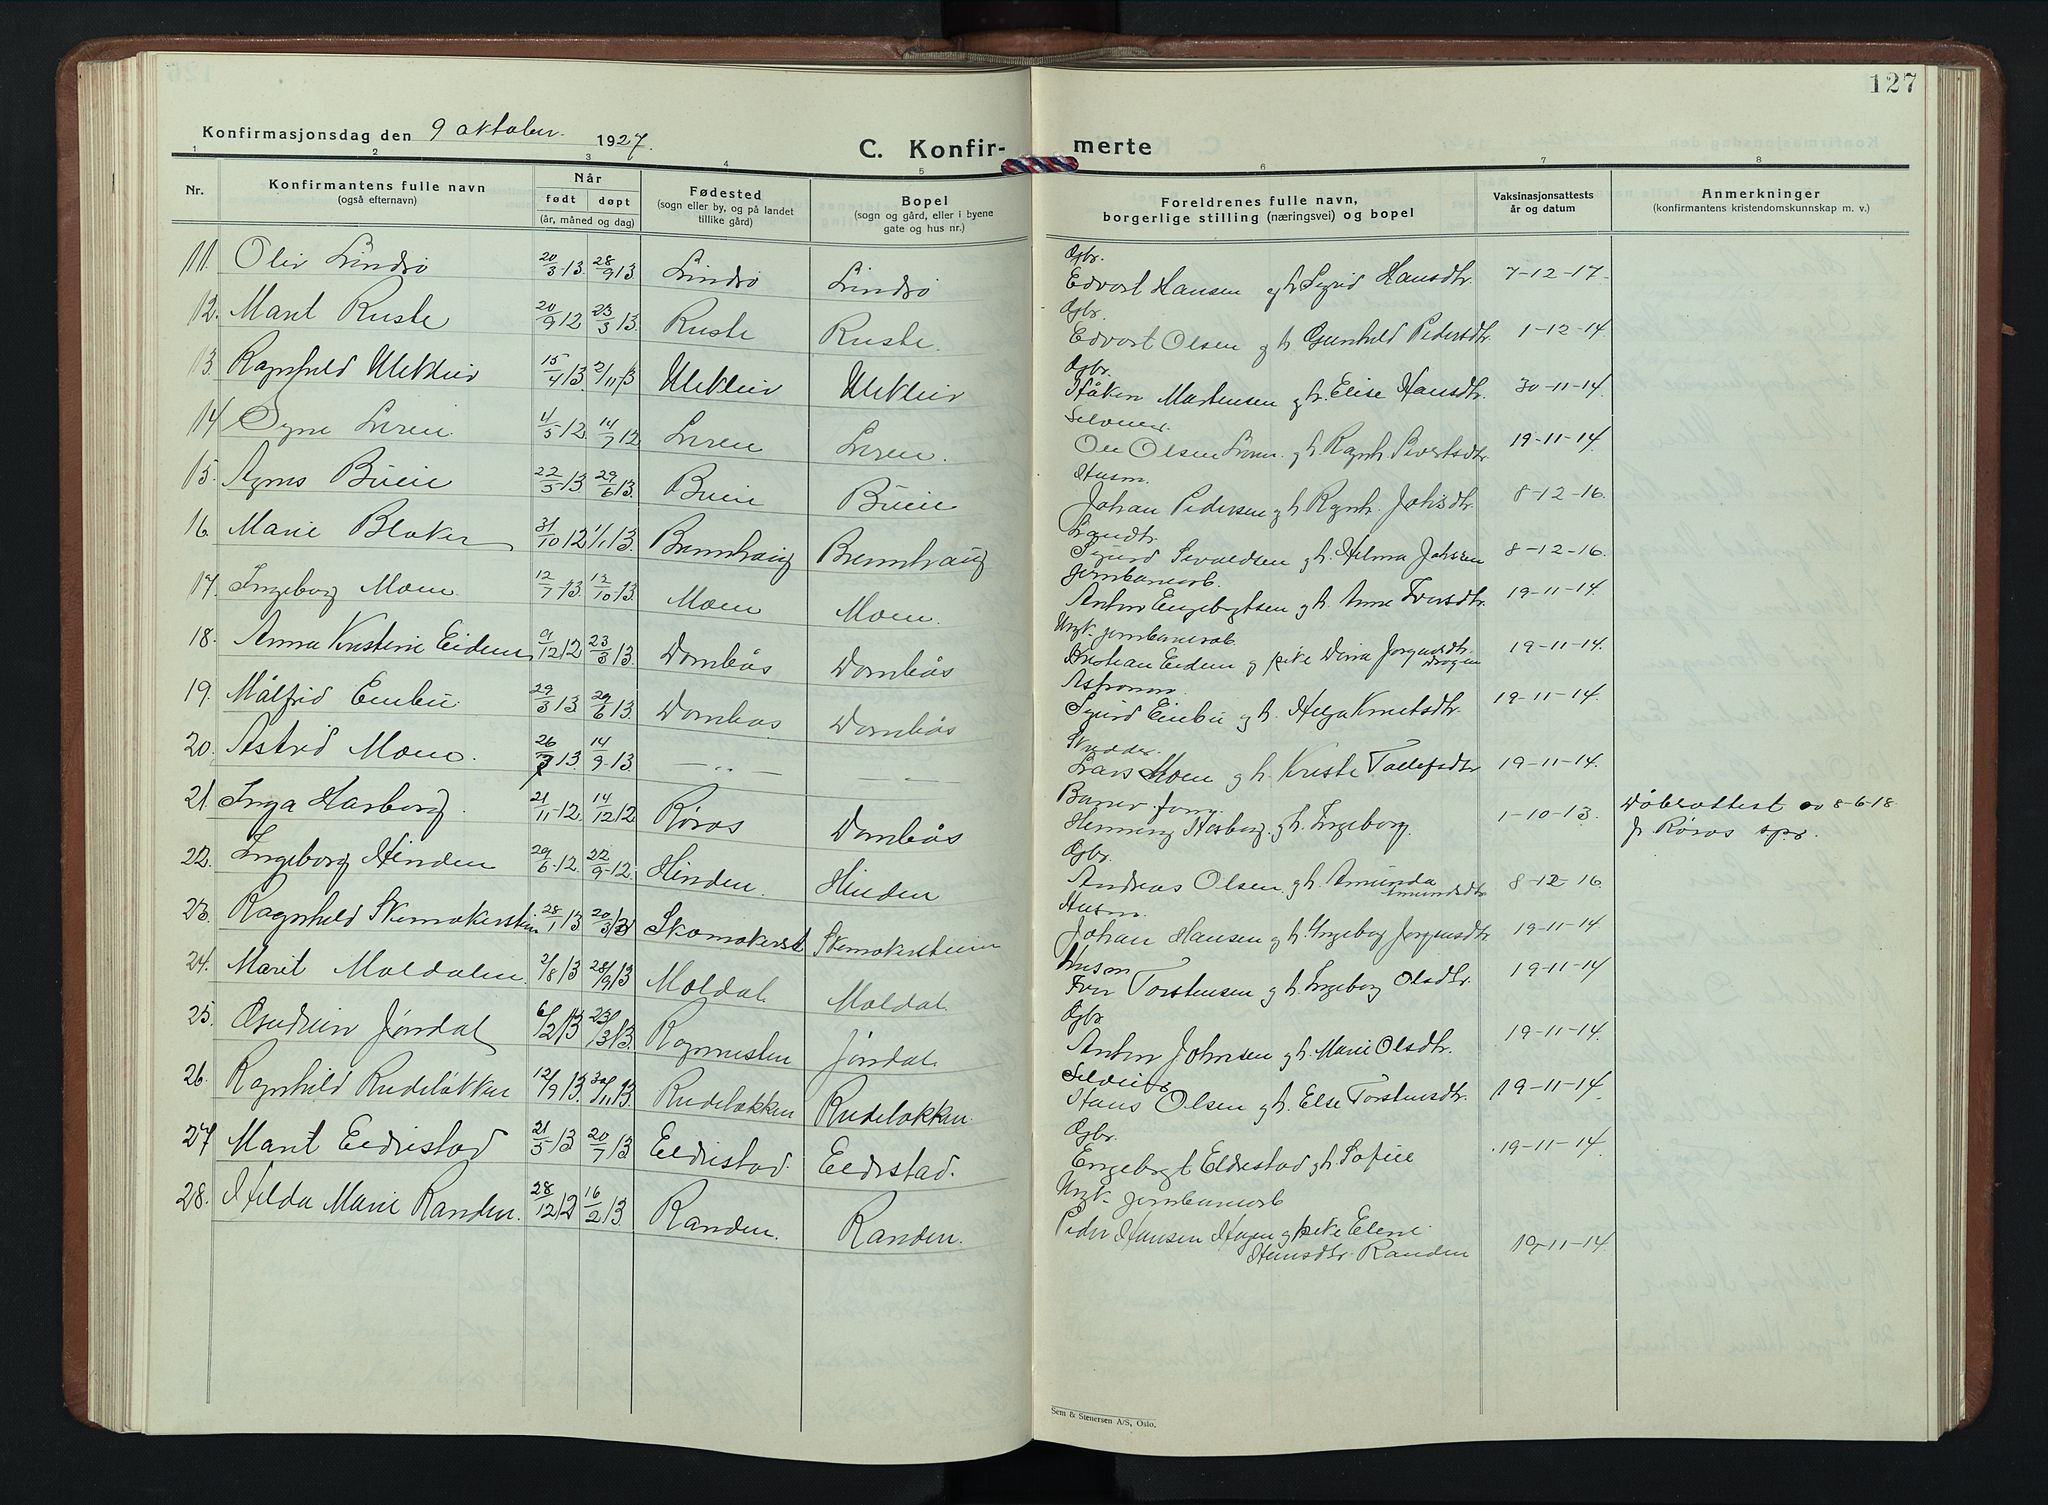 127
Konfirmasjonsdag den 9 oktober 1927.
C. Konfirmerte
1 2 3 4 5 6 7 8
Nr.
Konfirmantens fulle navn
(også efternavn)
Når
født døpt
(år, måned og dag)
Fødested
(sogn eller by, og på landet
tillike gård)
Bopel
(sogn og gård, eller i byene
gate og hus nr.)
Foreldrenes fulle navn,
borgerlige stilling (næringsvei) og bopel
Vaksinasjonsattests
år og datum
Anmerkninger
(konfirmantens kristendomskunnskap m. v.)
Gbr.
11. Oliv Lindsø 20/3-13 28/9 13 Lindsø Lindsø Edvart Hansen og h. Sigrid Hansdtr. 7-12-17.
Gbr.
12. Marit Ruste 20/9 12 23/3 13. Ruste Ruste. Edvart Olsen og h. Gunhild Pedersdtr. 1-12-14.
Gbr.
13. Ragnhild Ulekleiv 15/4 13. 2/11 13 Ulekleiv Ulekleiv Håken Martensen og h. Elise Hansdtr. 30-11-14.
Selveier
14. Syne Loren 4/5 12. 14/7 12 Loren Loren. Ole Olsen Loren og h. Ragnh. Sivertsdtr. 19-11-14.
Husm.
15. Agnes Bueie 22/5-13 29/6 13. Bueie Bueie Johan Pedersen og h. Ragnh. Johsdtr. 8-12-16.
16. Marie Blaker 31/10 12 1/1 13. Brennhaug Brennhaug Sigurd Sevaldsen og h. Helma Johsen 8-12-16.
jernbanearb.
17. Ingeborg Moen. 12/7-13. 12/10 13. Moen Moen. Anton Engebrgtsen og h. Anne Iversdtr. 19-11-14.
Ugk. jernbanearb.
18. Anna Kristine Eidem 9/12 12 23/3 13. Dombås Dombås Kristian Eidem og pike Dorra Jørgensdtr. 19-11-14.
Astronom
19. Målfrid Einbu. 29/3 13. 29/6 13. Dombås Dombås Sigurd Einbu og h. Helga Knutsdtr. 19-11-14.
Skredder.
20. Astrid Moen. 26/7 13. 14/9-13. — " — — " — Lars Moen og h. Kristi Tollefsdtr 19-11-14.
21. Inga Harborg. 21/11-12. 14/12 12. Røros Dombås Henning Harborg. og h. Ingeborg. 1-10-13. Dåbsattest av 8-6-18.
fr Røros spr.
Gbr.
22. Ingeborg Hinden 29/6-12. 22/9-12. Hinden. Hinden Andreas Olsen og h. Amunda Amundsdtr 8-12-16.
Husm.
23. Ragnhild Skomakerstuen 28/1 13 20/3 13 Skomakerst Skomakerstuen Johan Hansen og h. Ingeborg Jørgensdtr 19-11-14.
Husm
24. Marit Moldalen. 2/8 13 28/9 13 Moldal. Moldal. Iver Torstensen og h. Ingeborg Olsdtr. 19-11-14
Gbr.
25. Gudrun Jøndal 6/2 13 23/3 13. Jøndal. Anton Johnsen og h. Marie Olsdtr. 19-11-14.
Selveier
26. Ragnhild Rudeløkken 12/9 13. 30/11 13. Rudeløkken Rudeløkken. Hans Olsen og h. Else Torstensdtr. 19-11-14.
Gbr.
27 Marit Eldrestad 21/5 13 20/7 13 Eldrestad. Eldrestad. Engebrgt Eldrestad og h. Sofie 19-11-14.
Ugk. jernbanearb
28. Hilda Marie Randen. 28/12 12 16/2 13. Randen. Randen. Peder Hansen Hagen og pike Eleni
Hansdtr. Randen 19-11-14.
Sem & Stenersen A/S, Oslo.